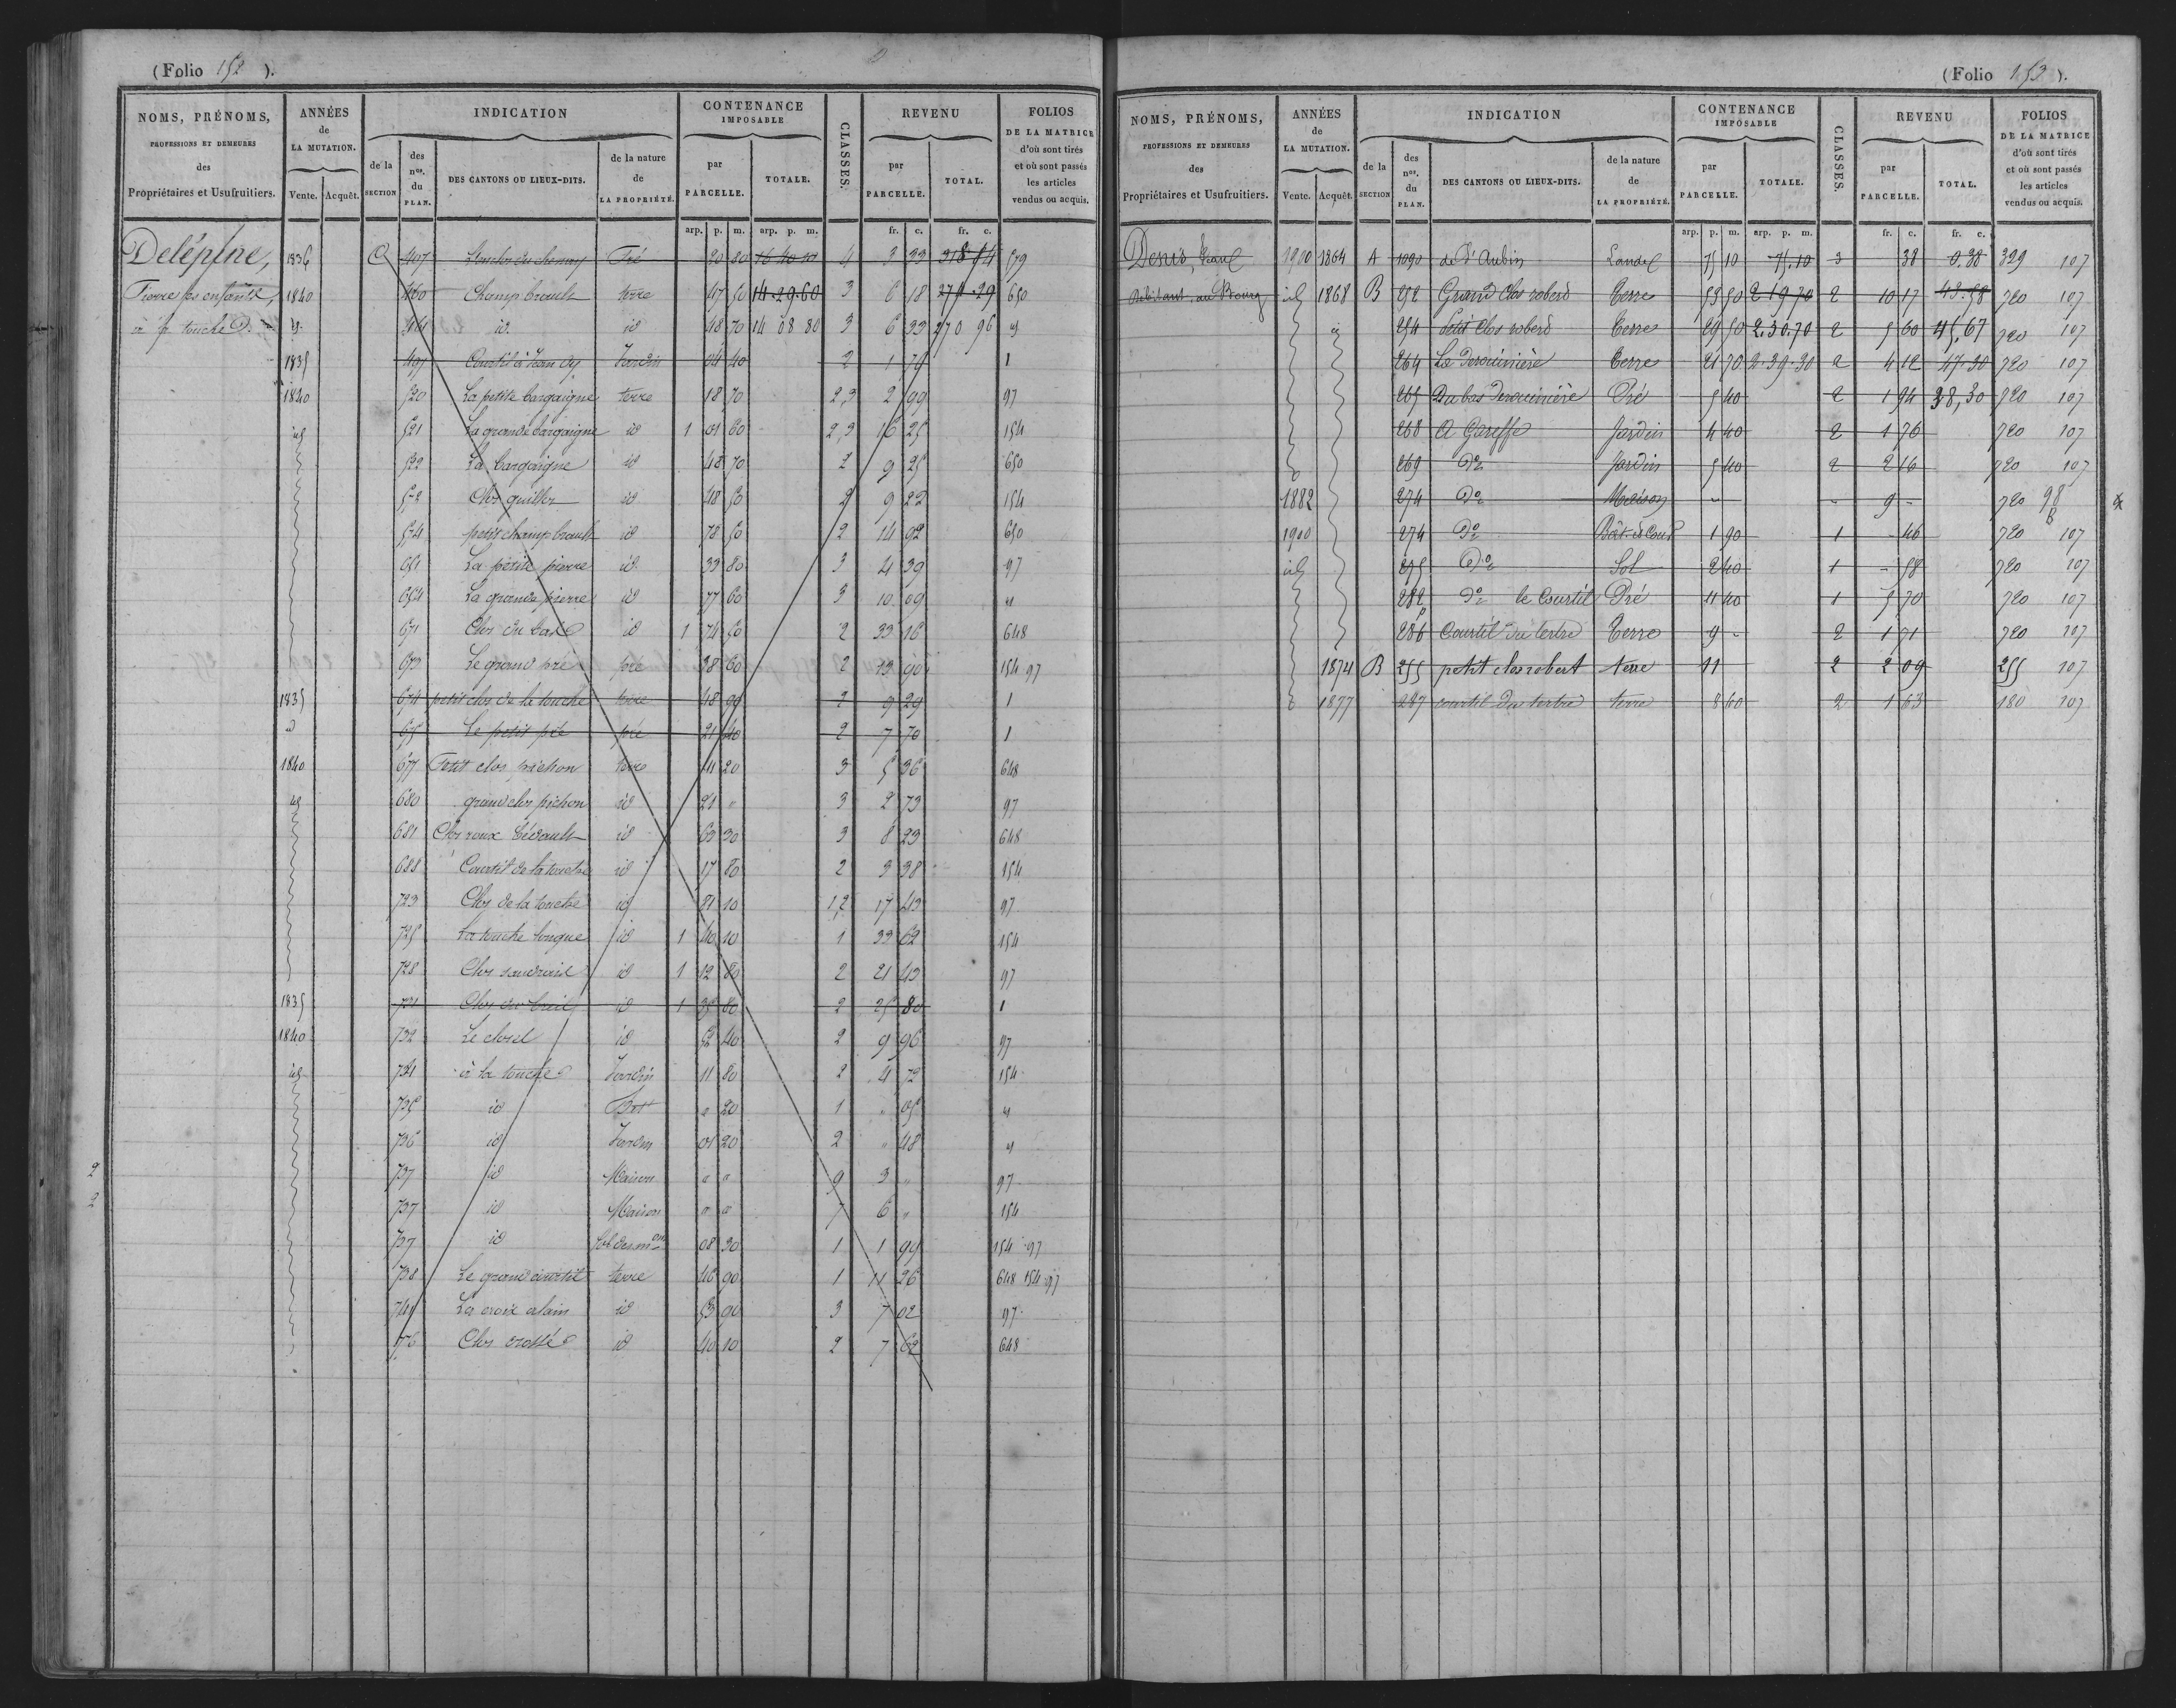 (Folio 152 ).
NOMS, PRÉNOMS, PROFESSIONS ET DEMEURES des Propriétaires et Usufruitiers.
ANNÉES de LA MUTATION. Vente. Acquêt.
INDICATION de la SECTION des nos. du PLAN. DES CANTONS OU LIEUX-DITS. de la nature de LA PROPRIÉTÉ.
CONTENANCE IMPOSABLE par PARCELLE. TOTALE.
CLASSES.
REVENU par PARCELLE. TOTAL.
FOLIOS DE LA MATRICE d'où sont tirés et où sont passés les articles vendus ou acquis.
arp. p. m. arp. p. m. fr. c. fr. c.
Delépine, 1836 C 407 Pré 20 80 4 3 33 318 14 579
Pierre les enfants, 1840 460 Champ brault terre 47 50 14.29.60 3 6 18 274.29 650
à la touche id. 461 id id 48 70 14 08 80 3 6 33 270 96 id
1835 497 Jardin 04 40 2 1 79 1
1840 520 La petite bargaigne terre 18 70 2,3 2 99 97
id 521 La grande bargaigne id 1 01 60 2,3 16 25 154
522 La bargaigne id 48 70 2 9 25 650
572 Clos quiller id 48 50 2 9 22 154
574 petit champ brault id 78 50 2 14 92 650
651 La petite pierre id 33 80 3 4 39 97
654 La grande pierre id 77 60 3 10 09 id
671 Clos du bas id 1 74 50 2 33 16 648
673 Le grand pré pré 38 60 2 13 90 154 97
1835 674 petit clos de la touche terre 48 90 2 9 29 1
id 675 Le petit pré pré 21 40 2 7 70 1
1840 677 Petit clos pichon terre 41 20 3 5 36 648
id 680 grand clos pichon id 21 " 3 2 73 97
681 Clos roux Tévault id 63 30 3 8 23 648
688 Courtil de la touche id 17 80 2 3 38 154
723 Clos de la touche id 81 10 1,2 17 43 97
725 La touche longue id 1 40 10 1 33 62 154
728 Clos id 1 12 80 2 21 43 97
1835 731 Clos du breil id 1 35 80 2 25 80 1
1840 732 Le closel id 52 40 2 9 96 97
id 734 à la touche Jardin 11 80 2 4 72 154
735 id Sol " 20 1 " 05 id
736 id Jardin 01 20 2 " 48 id
2 737 id Maison " " 9 3 " 97
2 737 id Maison " " 7 6 " 154
737 id Sol des mons 08 30 1 1 99 154 97
738 Le grand courtil terre 46 90 1 11 26 648 154 97
La croix alain id 53 90 3 7 02 97
Clos crossé id 40 10 2 7 62 648
(Folio 153 ).
NOMS, PRÉNOMS, PROFESSIONS ET DEMEURES des Propriétaires et Usufruitiers.
ANNÉES de LA MUTATION. Vente. Acquêt.
INDICATION de la SECTION des nos. du PLAN. DES CANTONS OU LIEUX-DITS. de la nature de LA PROPRIÉTÉ.
CONTENANCE IMPOSABLE par PARCELLE. TOTALE.
CLASSES.
REVENU par PARCELLE. TOTAL.
FOLIOS DE LA MATRICE d'où sont tirés et où sont passés les articles vendus ou acquis.
arp. p. m. arp. p. m. fr. c. fr. c.
Denis, Jean 1900 1864 A 1090 de d'Aubin Lande 75 10 75.10 3 38 0.38 399 107
Débitant au Bourg id 1868 B 252 Grand Clos robert Terre 53 50 2 19 70 2 10 17 43.58 720 107
id 254 Petit Clos robert Terre 29 50 2.30.70 2 5 60 45,67 720 107
264 La Derouinière Terre 21 70 2.39.30 2 4 12 47.30 720 107
265 Du bas Derouinière Pré 5 40 2 1 94 38,30 720 107
268 A Gareffe Jardin 4 40 2 1 76 720 107
269 Do Jardin 5 40 2 2 16 720 107
1882 274 Do Maison - - 9 - 720 98
1900 274 Do Bât. et Cour 1 90 1 - 46 720 107
id 275 Do Sol 2 40 1 - 58 720 107
282 Do le Courtil Pré 11 40 1 5 70 720 107
286 p Courtil du tertre Terre 9 - 2 1 71 720 107
1874 B 255 petit clos robert terre 11 2 2 09 255 107
1877 287 courtil du tertre terre 8 60 2 1 63 180 107